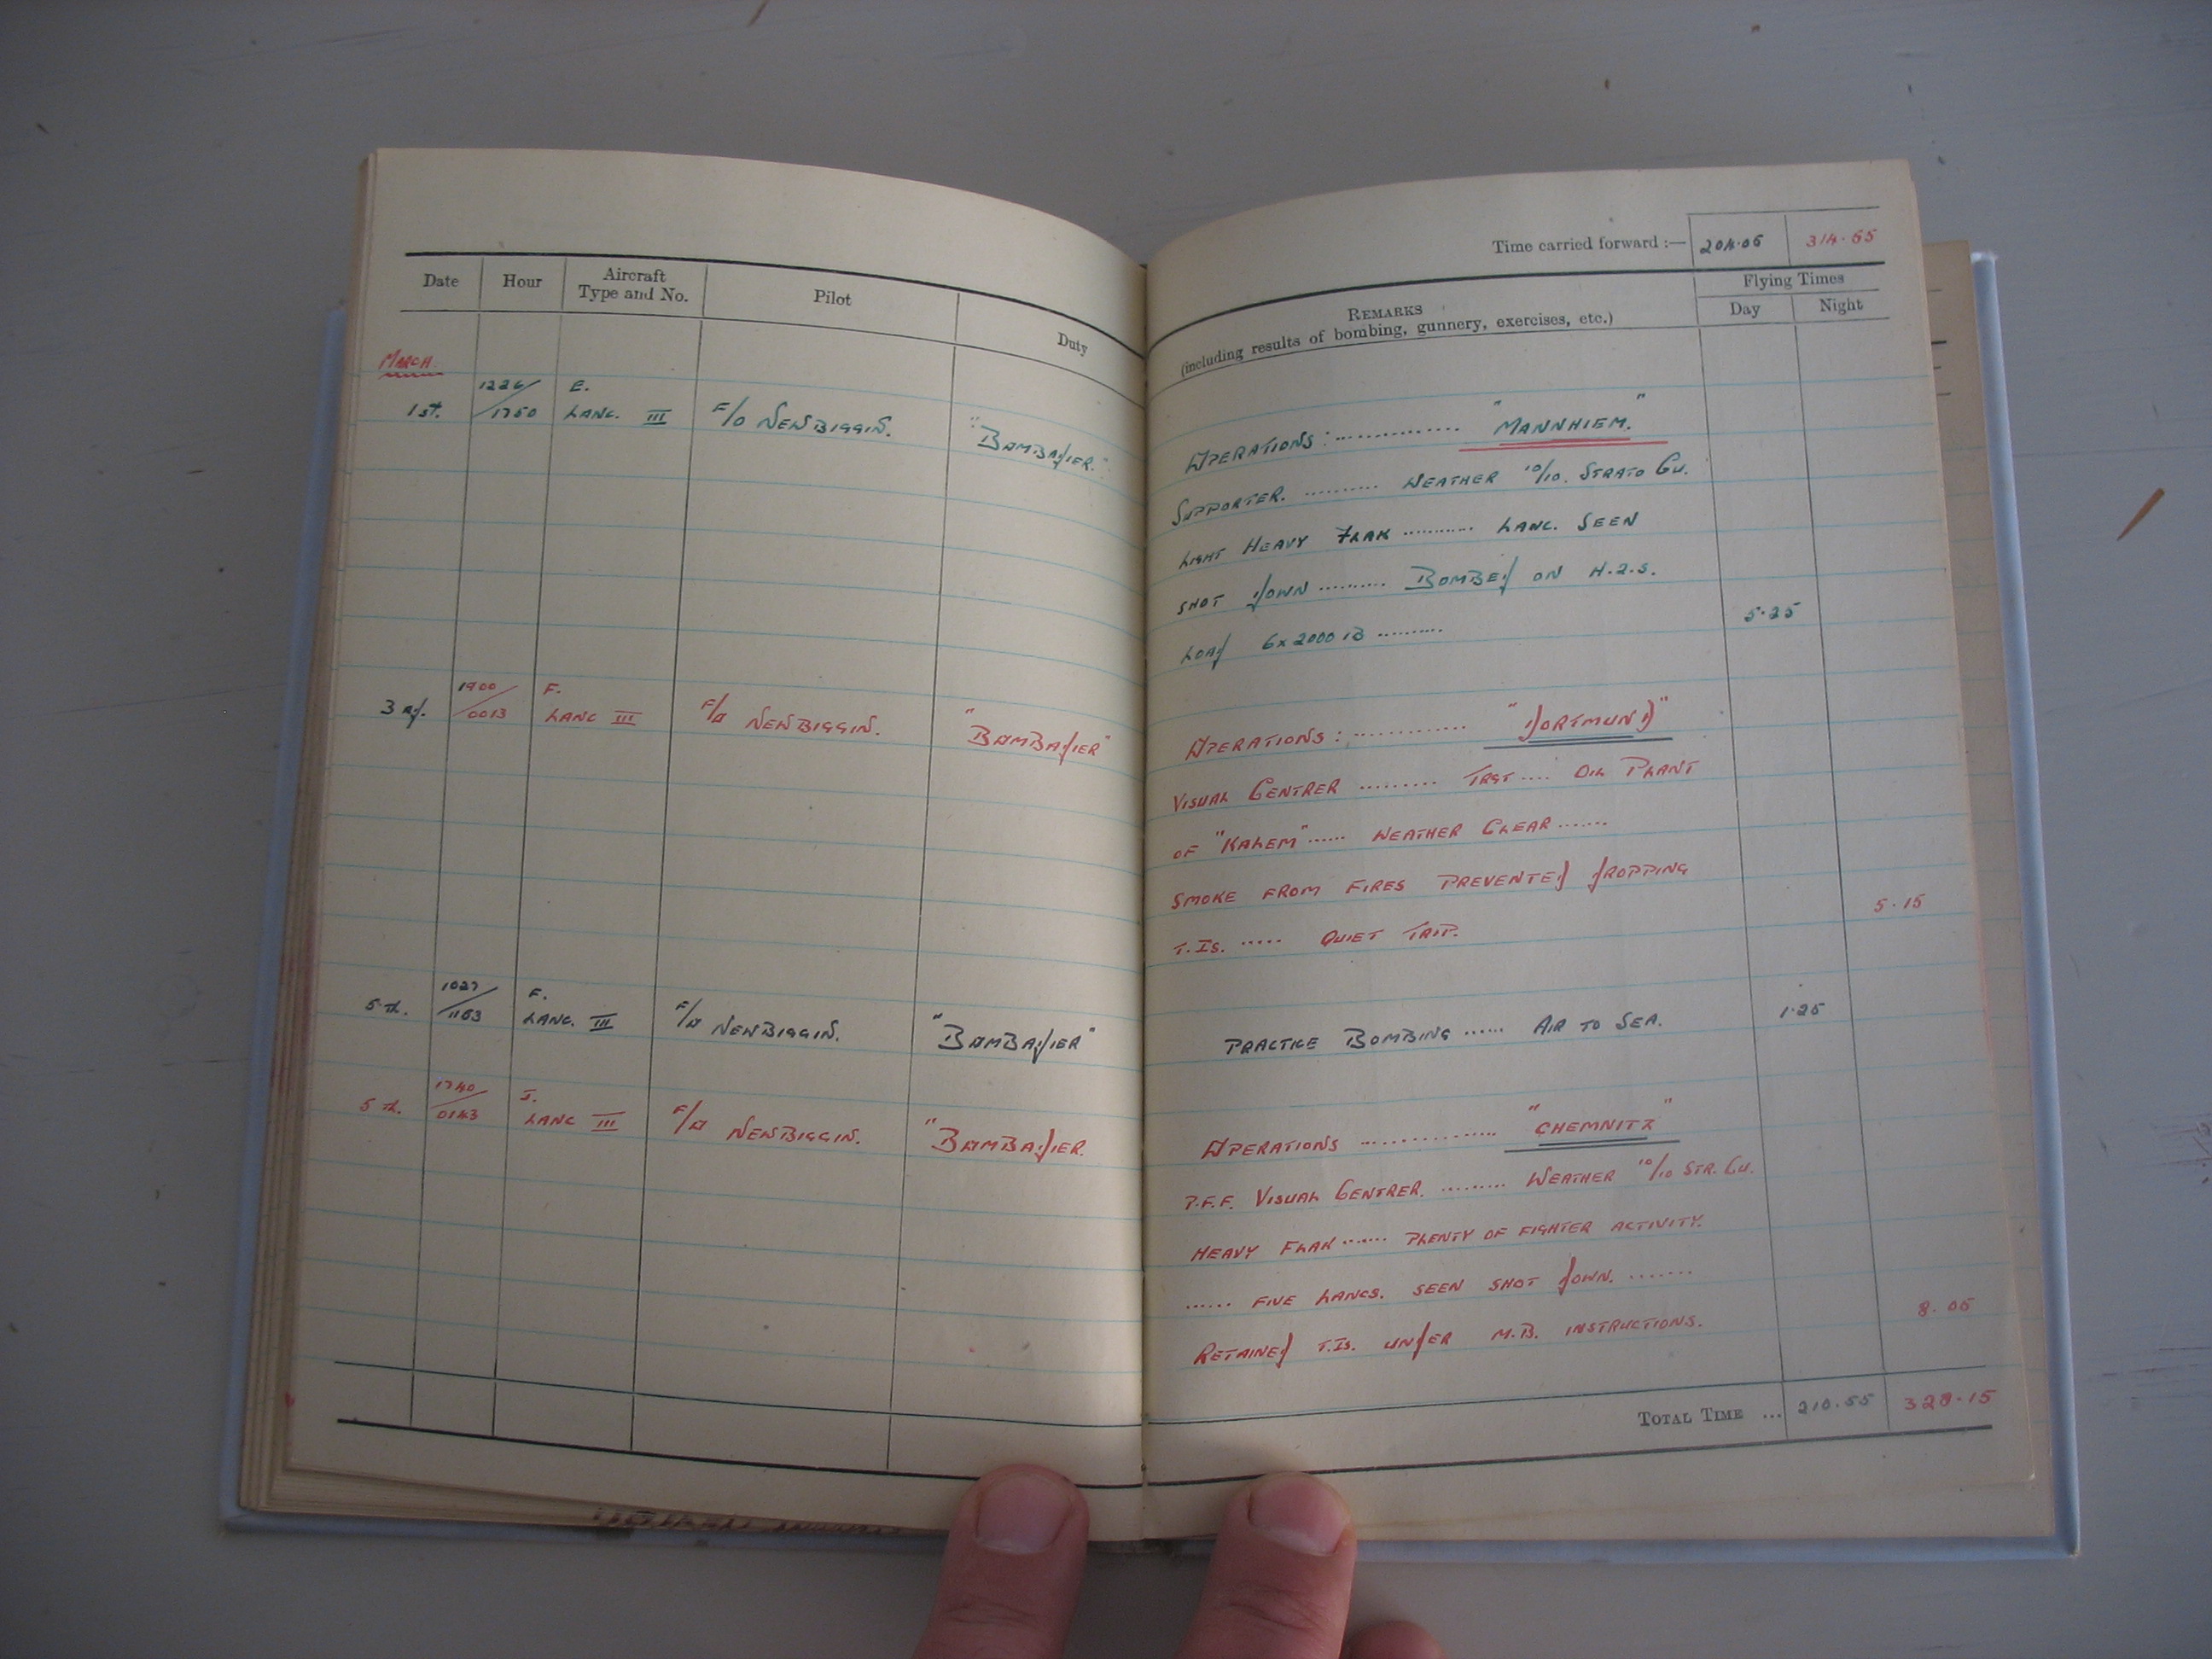 Time carried forward :— 204.05 314.55
Date Hour Aircraft Type and No. Pilot Duty
REMARKS (including results of bombing, gunnery, exercises, etc.) Flying Times Day Night
MARCH.
1st. 1226/1750 E. LANC. III F/O NEWBIGGIN. "BOMBADIER."
OPERATIONS: .............. "MANNHIEM."
SUPPORTER. .......... WEATHER 10/10. STRATO CU.
LIGHT HEAVY FLAK .......... LANC. SEEN
SHOT DOWN .......... BOMBED ON H.2.S.
LOAD 6x2000 lB .......... 5.25
3 RD. 1900/0013 F. LANC III F/O NEWBIGGIN. "BOMBADIER"
OPERATIONS: ............ "DORTMUND"
VISUAL CENTRER ......... TRGT .... OIL PLANT
OF "KALEM" ..... WEATHER CLEAR .......
SMOKE FROM FIRES PREVENTED DROPPING
T.IS. ..... QUIET TRIP. 5.15
5 TH. 1027/1153 F. LANC. III F/O NEWBIGGIN. "BOMBADIER"
PRACTICE BOMBING ...... AIR TO SEA. 1.25
5 TH. 1740/0143 I. LANC III F/O NEWBIGGIN. "BOMBADIER.
OPERATIONS .............. "CHEMNITZ"
P.F.F. VISUAL CENTRER. ......... WEATHER 10/10 STR. CU.
HEAVY FLAK ....... PLENTY OF FIGHTER ACTIVITY.
...... FIVE LANCS. SEEN SHOT DOWN. .......
RETAINED T.IS. UNDER M.B. INSTRUCTIONS. 8.05
TOTAL TIME ... 210.55 328.15